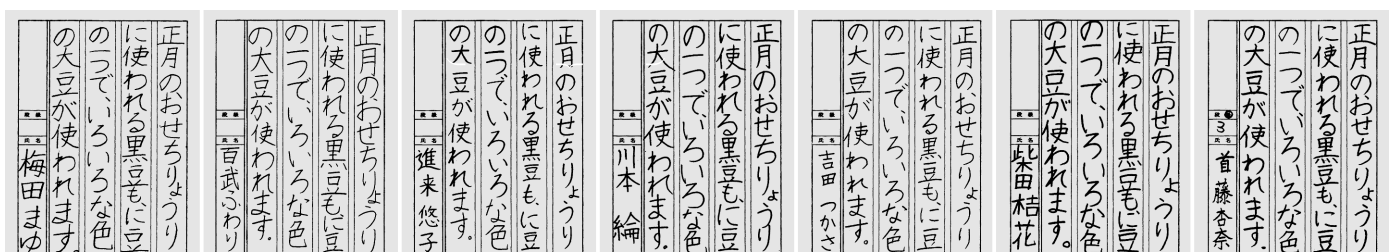 正月のおせちりょうり
に使われる黒豆も、に豆
の一つで、いろいろな色
の大豆が使われます。
段級
氏名
梅田まゆ
正月のおせちりょうり
に使われる黒豆も、に豆
の一つで、いろいろな色
の大豆が使われます。
段級
氏名
百武ふわり
正月のおせちりょうり
に使われる黒豆も、に豆
の一つで、いろいろな色
の大豆が使われます。
段級
氏名
進来悠子
正月のおせちりょうり
に使われる黒豆も、に豆
の一つで、いろいろな色
の大豆が使われます。
段級
氏名
川本 綸
正月のおせちりょうり
に使われる黒豆も、に豆
の一つで、いろいろな色
の大豆が使われます。
段級
氏名
吉田 つかさ
正月のおせちりょうり
に使われる黒豆も、に豆
の一つで、いろいろな色
の大豆が使われます。
段級
氏名
柴田桔花
正月のおせちりょうり
に使われる黒豆も、に豆
の一つで、いろいろな色
の大豆が使われます。
段級
3
氏名
首藤杏奈